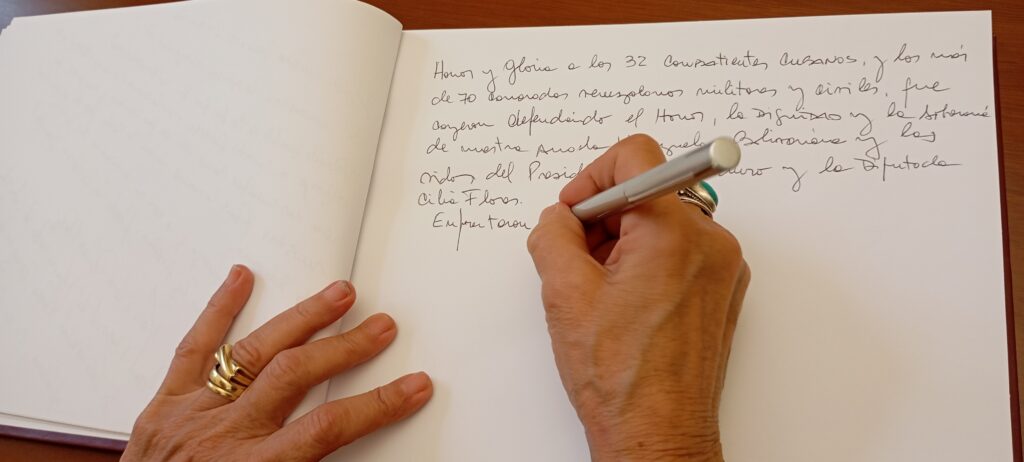 Honor y gloria a los 32 combatientes cubanos, y los más
de 70 camaradas venezolanos militares y civiles, que
cayeron defendiendo el Honor, la Dignidad y la Soberanía
de nuestra amada Bolivariana y las
vidas del y la Diputada
Cilia Flores.
Enfrentaron